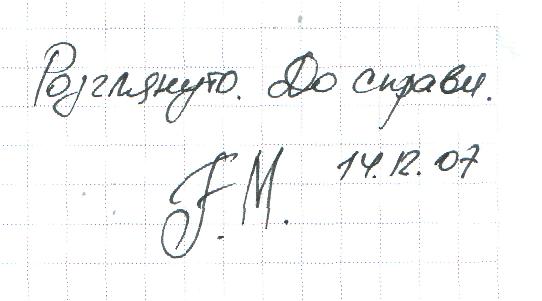 Розглянуто. До справи.
F.М. 14.12.07